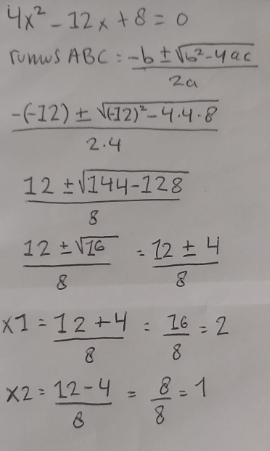 4x² - 12x + 8 = 0
rumus ABC = (-b ± √(b² - 4ac))/(2a)
(-(-12) ± √((-12)² - 4·4·8))/(2·4)
(12 ± √(144 - 128))/8
(12 ± √16)/8 = (12 ± 4)/8
x1 = (12 + 4)/8 = 16/8 = 2
x2 = (12 - 4)/8 = 8/8 = 1